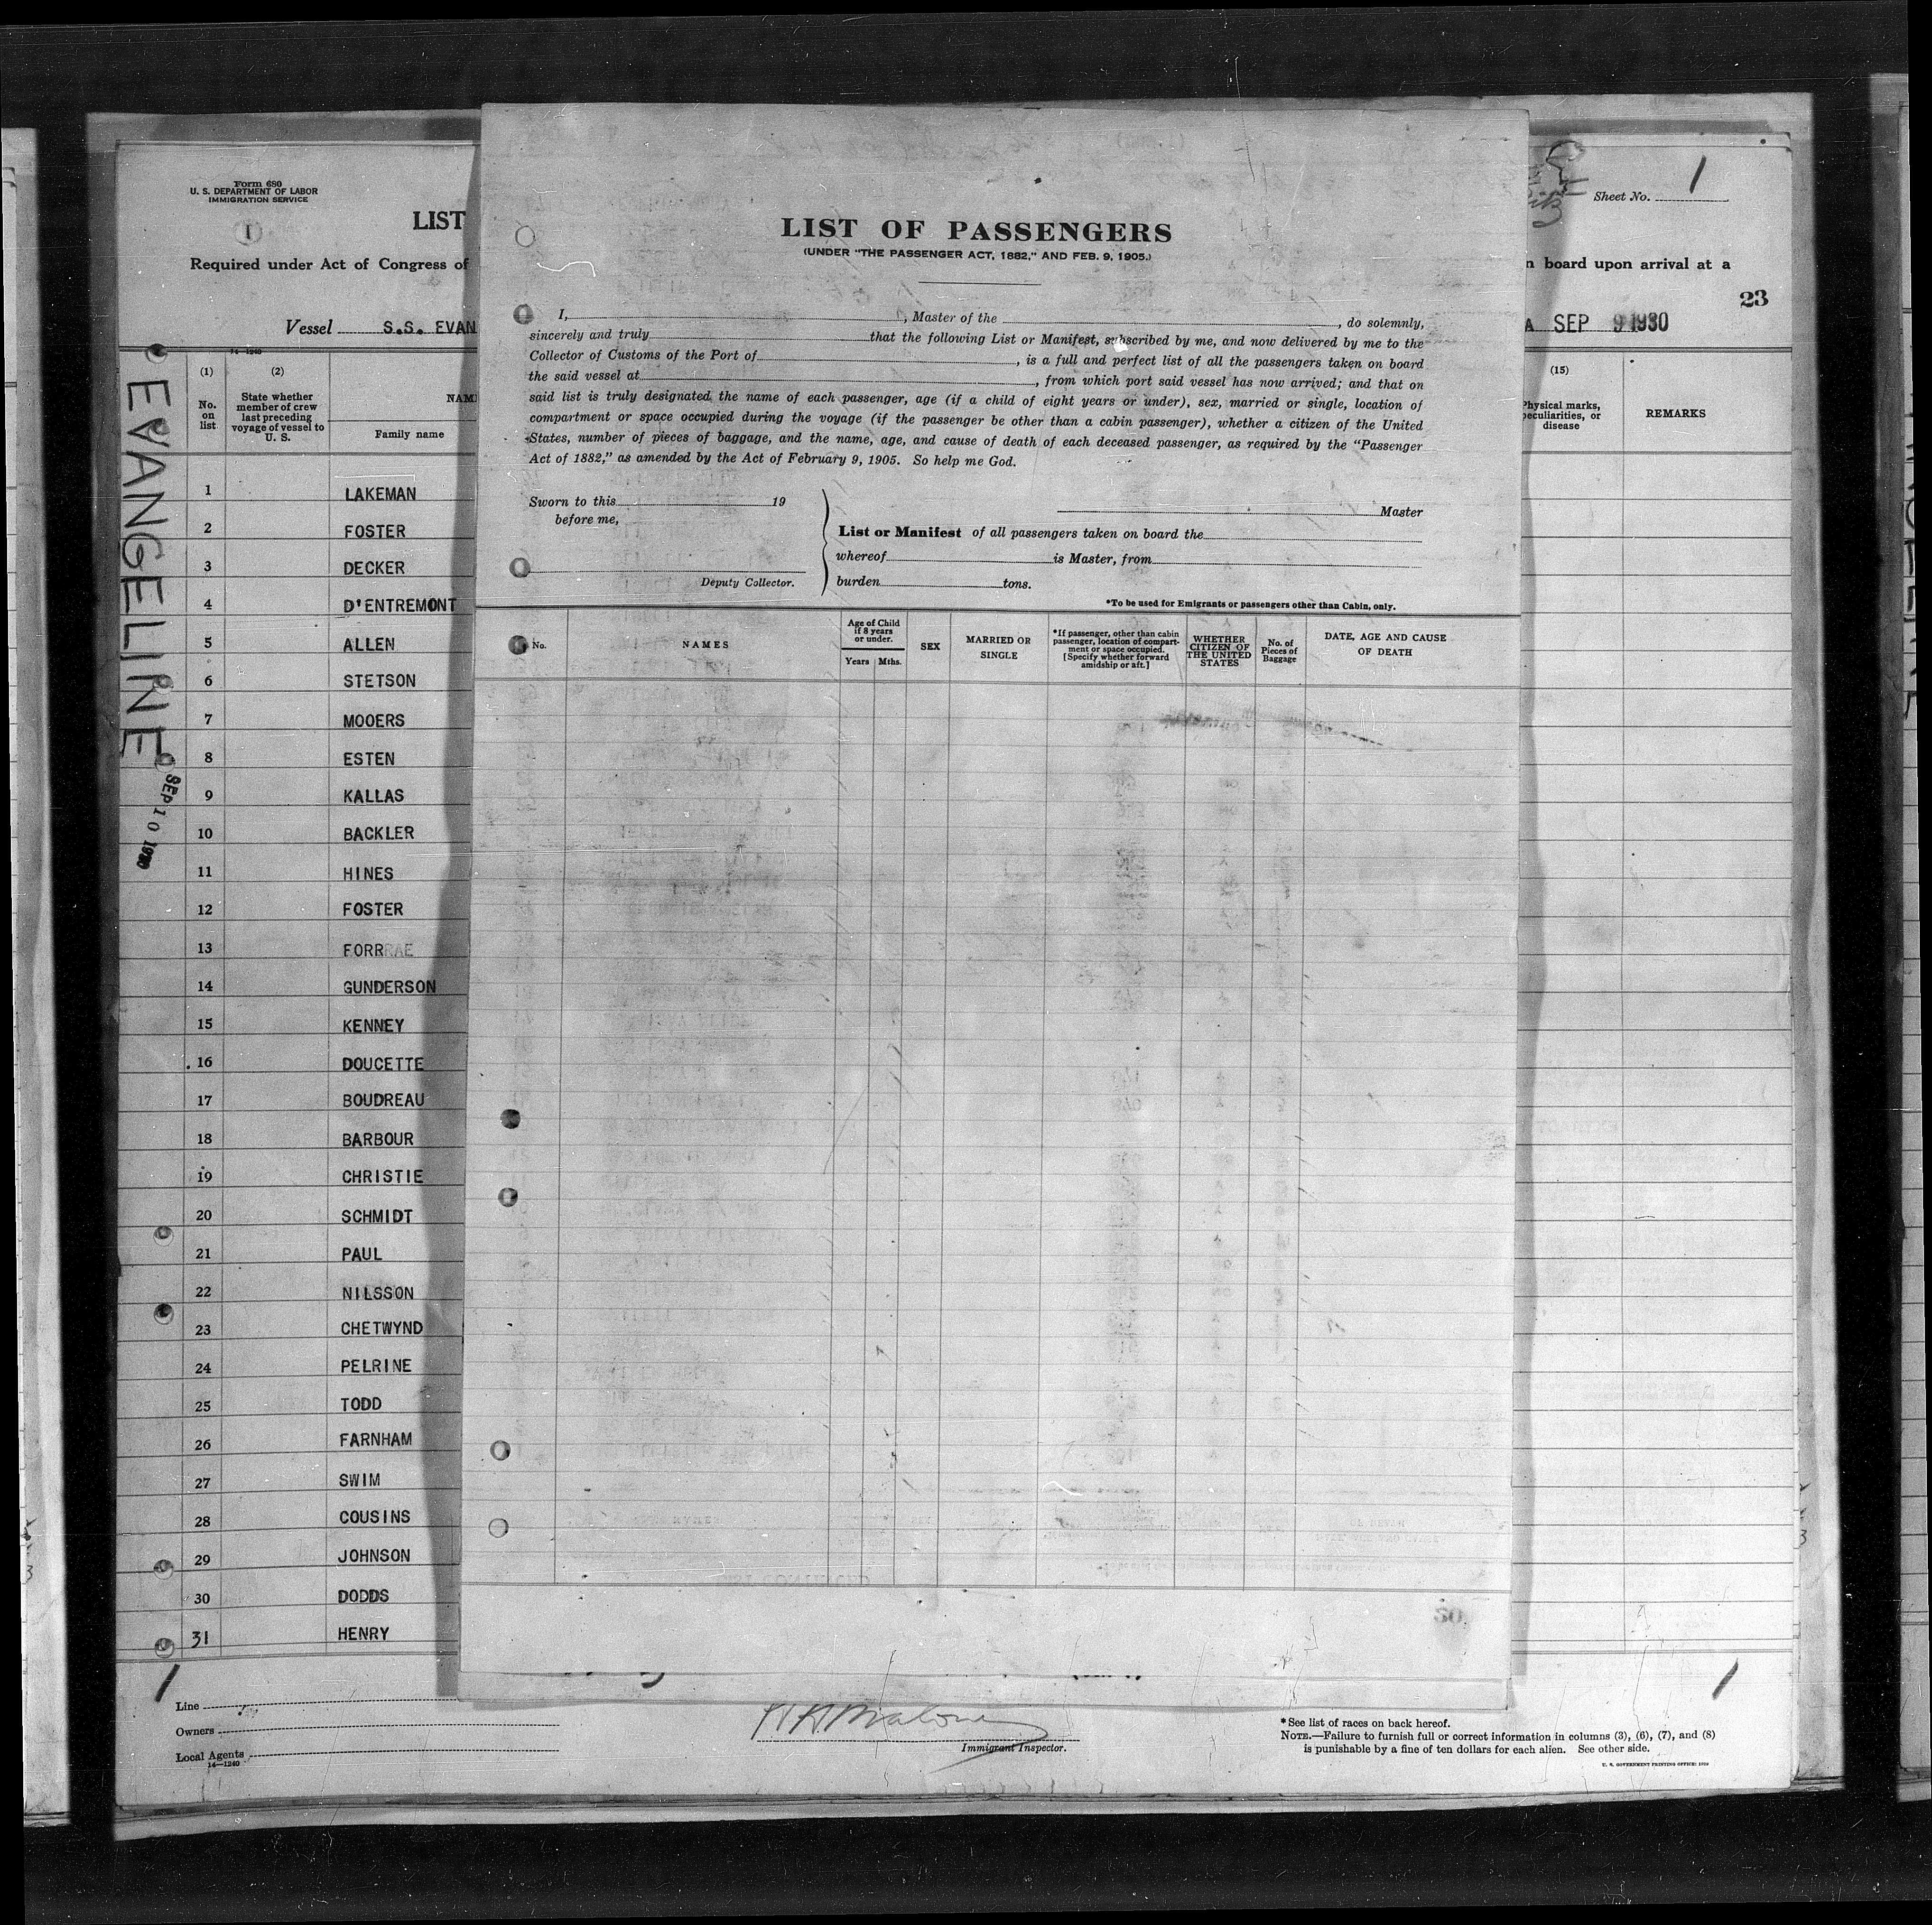 Form 680
U. S. DEPARTMENT OF LABOR
IMMIGRATION SERVICE
1
LIST
Required under Act of Congress of
Vessel S.S. EVAN
EVANGELINE
SEP 10 1930
(1)
No. on list
(2)
State whether member of crew last preceding voyage of vessel to U. S.
NAM
Family name
1 LAKEMAN
2 FOSTER
3 DECKER
4 D'ENTREMONT
5 ALLEN
6 STETSON
7 MOOERS
8 ESTEN
9 KALLAS
10 BACKLER
11 HINES
12 FOSTER
13 FORRRAE
14 GUNDERSON
15 KENNEY
16 DOUCETTE
17 BOUDREAU
18 BARBOUR
19 CHRISTIE
20 SCHMIDT
21 PAUL
22 NILSSON
23 CHETWYND
24 PELRINE
25 TODD
26 FARNHAM
27 SWIM
28 COUSINS
29 JOHNSON
30 DODDS
31 HENRY
1
Line
Owners
Local Agents
14—1240
LIST OF PASSENGERS
(UNDER "THE PASSENGER ACT, 1882," AND FEB. 9, 1905.)
I, , Master of the , do solemnly,
sincerely and truly that the following List or Manifest, subscribed by me, and now delivered by me to the
Collector of Customs of the Port of , is a full and perfect list of all the passengers taken on board
the said vessel at , from which port said vessel has now arrived; and that on
said list is truly designated the name of each passenger, age (if a child of eight years or under), sex, married or single, location of
compartment or space occupied during the voyage (if the passenger be other than a cabin passenger), whether a citizen of the United
States, number of pieces of baggage, and the name, age, and cause of death of each deceased passenger, as required by the "Passenger
Act of 1882," as amended by the Act of February 9, 1905. So help me God.
Sworn to this 19
before me,
Deputy Collector.
Master
List or Manifest of all passengers taken on board the
whereof is Master, from
burden tons.
*To be used for Emigrants or passengers other than Cabin, only.
No.
NAMES
Age of Child if 8 years or under.
Years Mths.
SEX
MARRIED OR SINGLE
*If passenger, other than cabin passenger, location of compartment or space occupied. [Specify whether forward amidship or aft.]
WHETHER CITIZEN OF THE UNITED STATES
No. of Pieces of Baggage
DATE, AGE AND CAUSE OF DEATH
Sheet No. 1
n board upon arrival at a
23
A SEP 9 1930
(15)
Physical marks, peculiarities, or disease
REMARKS
Immigrant Inspector.
1
*See list of races on back hereof.
NOTE.—Failure to furnish full or correct information in columns (3), (6), (7), and (8)
is punishable by a fine of ten dollars for each alien. See other side.